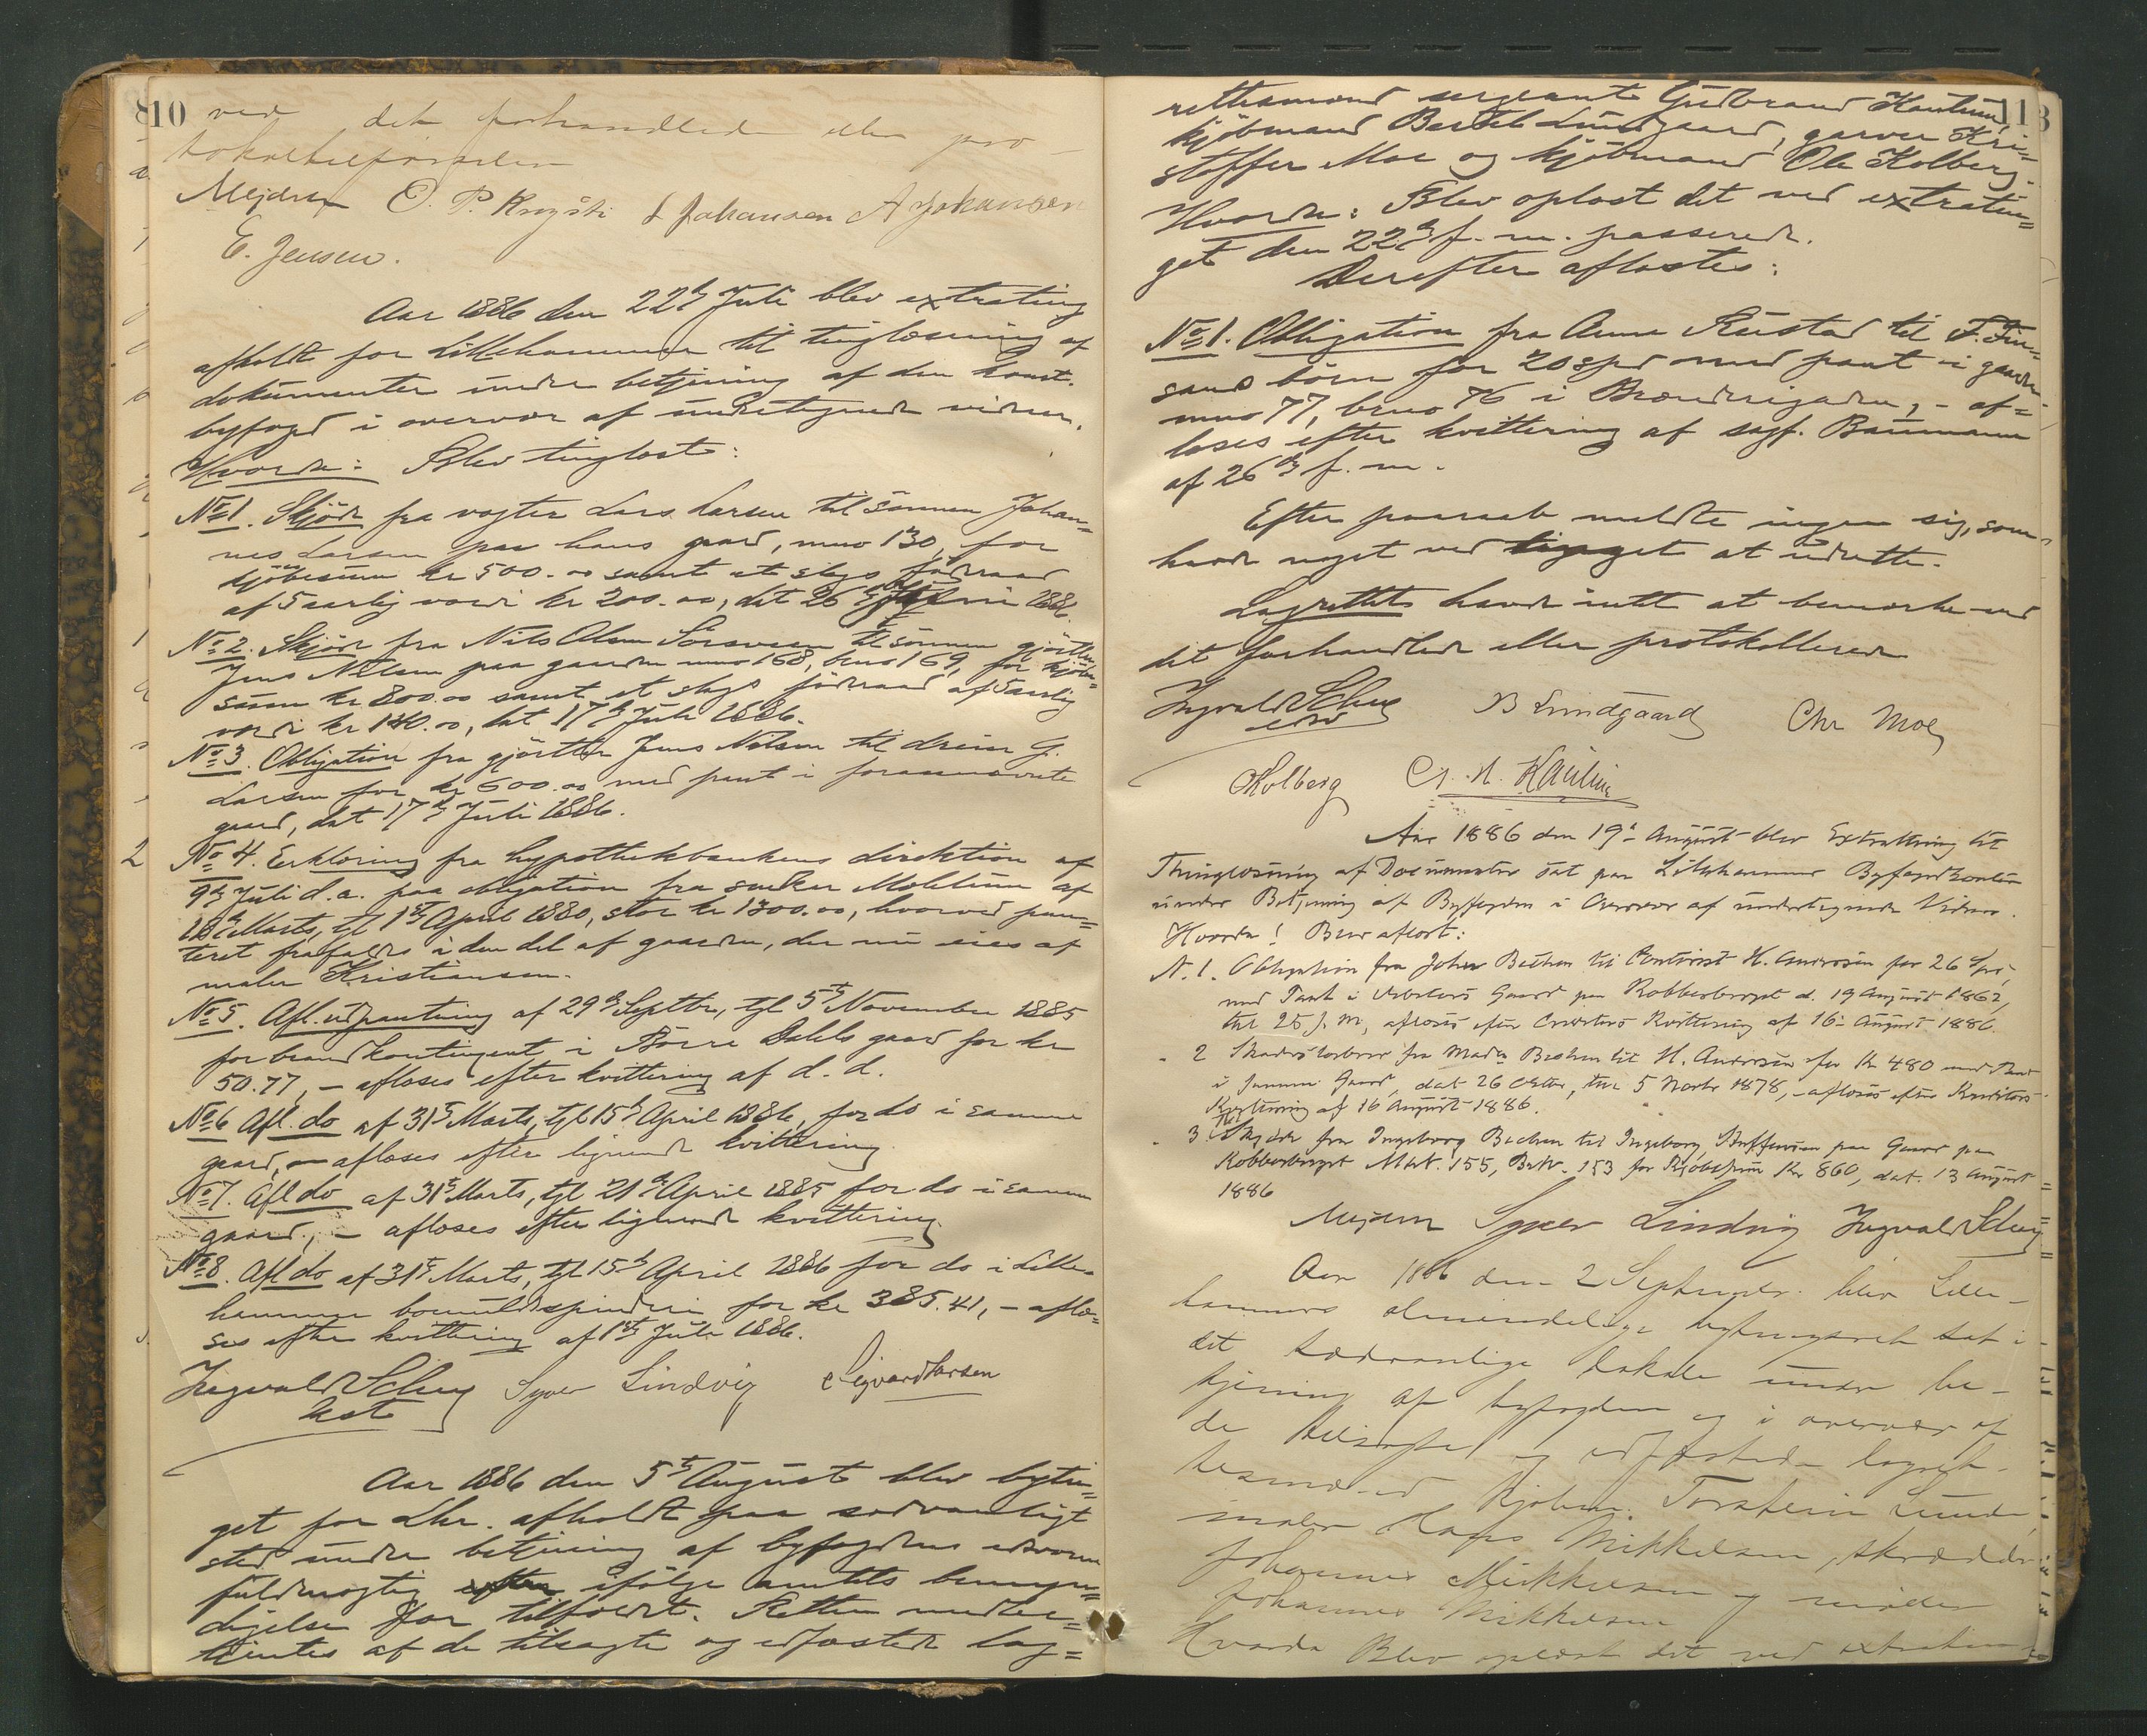 10
ved det forhandlede eller pro-
tokoltilførselen
Mejdell O. P. Krogsti L Johansen A Johansen
E. Jensen.
Aar 1886 den 22de Juli blev extrating
afholdt for Lillehammer til tinglæsning af
dokumenter under betjening af den konst.
byfoged i overvær af undertegnede vidner.
Hvorda: Blev tinglæst:
No 1. Skjöde fra vogter Lars Larsen til sönnen Johan-
nes Larsen paa hans gaard, mno 130, for
kjöbesum kr 500.00 samt et slags föderaad
af 5aarlig værdi kr 200.00, dat 26de Juni 1886.
No 2. Skjöde fra Nils Olsen Sörsveen til sönnen gjörtler
Jens Nilsen paa gaarden mno 168, bno 169, for kjöbe-
sum kr 800.00 samt et slags föderaad af 5aarlig
værdi kr 140.00, dat 17de Juli 1886.
No 3. Obligation fra gjörtler Jens Nilsen til dreier G.
Larsen for kr 600.00 med pant i forannævnte
gaard, dat 17de Juli 1886.
2 No 4. Erklæring fra hypothekbankens direktion af
9de Juli d.a. paa obligation fra snedker Mohlum af
18de Marts, tgl 1ste April 1880, stor kr 1300.00, hvorved pan-
teret frafaldes i den del af gaarden, der nu eies af
maler Kristiansen.
No 5. Afl. udpantning af 29de Septbr, tgl 5te November 1885
for brandkontingent i Börre Dahls gaard for kr
50.77, – aflæses efter kvittering af d. d.
No 6 Afl. do af 31te Marts, tgl 15de April 1886, for do i samme
gaard, – aflæses efter lignende kvittering.
No 7. Afl do af 31te Marts, tgl 21de April 1885 for do i samme
gaard, – aflæses efter lignende kvittering.
No 8. Afl do af 31te Marts, tgl 15de April 1886 for do i Lille-
hammer bomuldsspinderi for kr 385.41, – aflæ-
ses efter kvittering af 1ste Juli 1886.
Ingvald Schey Syver Lindvig Sigvard Larsen
kst
Aar 1886 den 5te August blev bytin-
get for Lhr. afholdt paa sædvanligt
sted under betjening af byfogdens edsvorne
fuldmægtig ifölge amtets bemyn-
digelse for tilfældet. Retten medbe-
tjentes af de tilsagte og edfæstede lag-
11
rettesmænd sergeant Gudbrand Kaulum,
kjöbmand Bertel Lundgaard, garver Kri-
stoffer Moe og kjöbmand Ole Kolberg.
Hvorda: Blev oplæst det ved extratin-
get den 22de f. m. passerede.
Derefter aflæstes:
No 1. Obligation fra Anne Rustad til F. Fin-
sands börn for 20 spd med pant i gaarden
mno 77, bno 76 i Brænderigaden, – af-
læses efter kvittering af sagf. Baumann
af 26de f. m.
Efter paaraab meldte ingen sig, som
havde noget ved tinget at udrette.
Lagrettet havde intet at bemærke ved
det forhandlede eller protokollerede
Ingvald Schey B Lundgaard Chr Moe
edsv
OKolberg G. H. Kaulum
Aar 1886 den 19de August blev Extratting til
Thinglæsning af Documenter sat paa Lillehammer Byfogedkontor
under Betjening af Byfogden i Overvær af undertegnede Vidner.
Hvorda! Blev aflæst:
N. 1. Obligation fra Johan Bechen til Contorist H. Andersen for 26 Spd,
med Pant i Debitors Gaard paa Kobberberget d. 19 August 1862,
thl 25 f. M, aflæses efter Creditors Kvittering af 16de August 1886.
- 2 Skadesløsbrev fra Mads Bechen til H. Andersen for Kr 480 med Pant
i samme Gaard, dat 26 Octbr, thl 5 Novbr 1878, – aflæses efter Kreditors
Kvittering af 16 August 1886.
- 3 Skjøde fra Ingeborg Bechen til Ingeborg Steffensen paa Gaard paa
Kobberberget MN. 155, BN. 153 for Kjøbesum Kr 860, dat. 13 August
1886
Mejdell Syver Lindvig Ingvald Schey
Aar 1886 den 2 September blev Lille-
hammers almindelige bytingsret sat i
det sædvanlige lokale under be-
tjening af byfogden og i overvær af
de tilsagte og edfæstede lagret-
tesmænd Kjøbm. Torstein Lunde,
maler Hans Mikkelsen, skrædder
Johannes Mikkelsen og møller
Johannes Mikkelsen
Hvorda Blev oplæst det ved extratin-